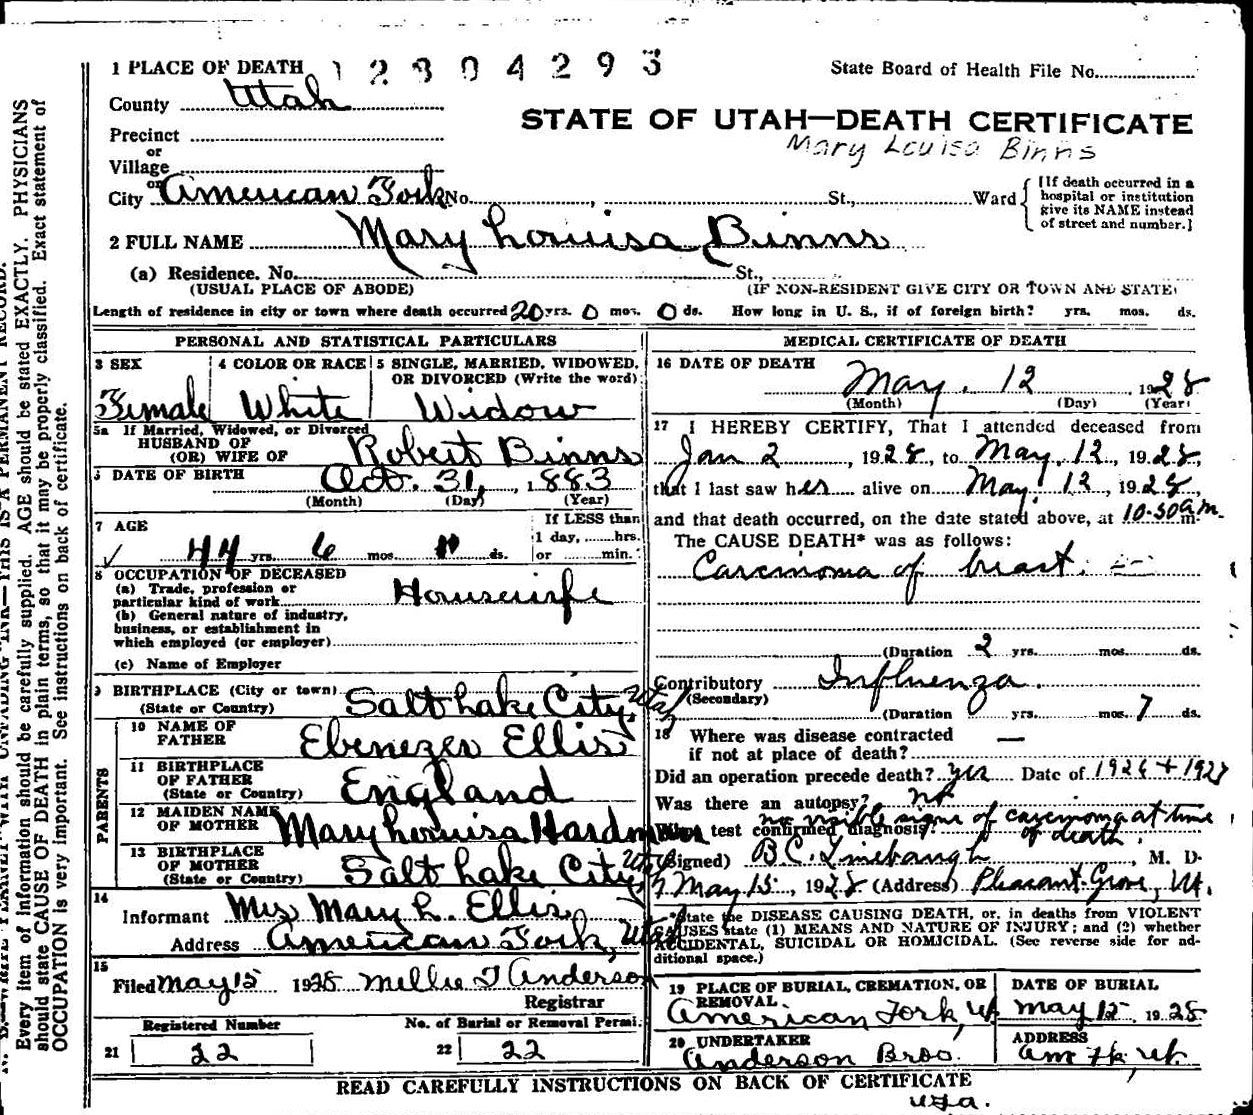 1 PLACE OF DEATH 12804293 State Board of Health File No.
County Utah
STATE OF UTAH—DEATH CERTIFICATE
Precinct
Mary Louisa Binns
or
Village
or
City American Fork No. , St., Ward
[If death occurred in a hospital or institution give its NAME instead of street and number.]
2 FULL NAME Mary Louisa Binns
(a) Residence. No. St.,
(USUAL PLACE OF ABODE) (IF NON-RESIDENT GIVE CITY OR TOWN AND STATE)
Length of residence in city or town where death occurred 20 yrs. 0 mos. 0 ds. How long in U. S., if of foreign birth? yrs. mos. ds.
PERSONAL AND STATISTICAL PARTICULARS
3 SEX 4 COLOR OR RACE 5 SINGLE, MARRIED, WIDOWED,
OR DIVORCED (Write the word)
Female White Widow
5a If Married, Widowed, or Divorced
HUSBAND OF
(OR) WIFE OF Robert Binns
6 DATE OF BIRTH Oct. 31, 1883
(Month) (Day) (Year)
7 AGE If LESS than
1 day, hrs.
44 yrs. 6 mos. 11 ds. or min.
8 OCCUPATION OF DECEASED
(a) Trade, profession or
particular kind of work Housewife
(b) General nature of industry,
business, or establishment in
which employed (or employer)
(c) Name of Employer
9 BIRTHPLACE (City or town)
(State or Country) Salt Lake City, Utah
PARENTS
10 NAME OF
FATHER Ebenezer Ellis
11 BIRTHPLACE
OF FATHER
(State or Country) England
12 MAIDEN NAME
OF MOTHER Mary Louisa Hardman
13 BIRTHPLACE
OF MOTHER
(State or Country) Salt Lake City, Utah
14
Informant Mrs Mary L. Ellis
Address American Fork, Utah
15
Filed May 15 1928 Millie T Anderson
Registrar
Registered Number No. of Burial or Removal Permit
21 22 22 22
MEDICAL CERTIFICATE OF DEATH
16 DATE OF DEATH
May. 12 1928
(Month) (Day) (Year)
17 I HEREBY CERTIFY, That I attended deceased from
Jan 2, 1928, to May, 12, 1928,
that I last saw her alive on May 12, 1928
and that death occurred, on the date stated above, at 10-50 a m.
The CAUSE DEATH* was as follows:
Carcinoma of breast.
(Duration 2 yrs. mos. ds.
Contributory Influenza
(Secondary)
(Duration yrs. mos. 7 ds.
18 Where was disease contracted
if not at place of death? —
Did an operation precede death? yes Date of 1926 + 1927
Was there an autopsy? no
no visible signs of carcinoma at time
What test confirmed diagnosis? of death.
(Signed) B.C. Linebaugh, M. D.
May 15, 1928 (Address) Pleasant Grove, Ut.
*State the DISEASE CAUSING DEATH, or, in deaths from VIOLENT
CAUSES state (1) MEANS AND NATURE OF INJURY; and (2) whether
ACCIDENTAL, SUICIDAL OR HOMICIDAL. (See reverse side for ad-
ditional space.)
19 PLACE OF BURIAL, CREMATION, OR DATE OF BURIAL
REMOVAL
American Fork, Ut May 15 1928
20 UNDERTAKER ADDRESS
Anderson Bros. Am Fk, Ut.
READ CAREFULLY INSTRUCTIONS ON BACK OF CERTIFICATE
USA.
Every item of information should be carefully supplied. AGE should be stated EXACTLY. PHYSICIANS
should state CAUSE OF DEATH in plain terms, so that it may be properly classified. Exact statement of
OCCUPATION is very important. See instructions on back of certificate.